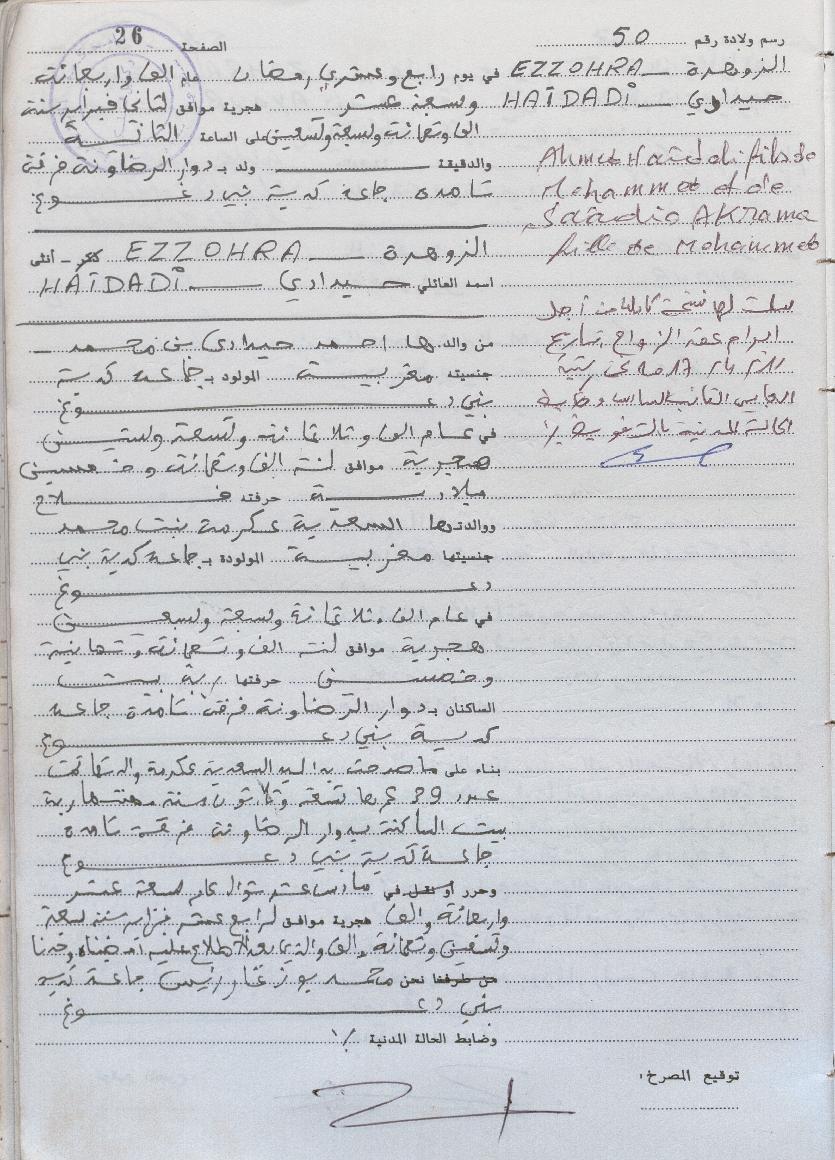 رسم ولادة رقم 50
الصفحة 26
الزوهرة EZZOHRA
حيداوي HAÏDADI
Ahmed Haïdadi fils de
Mohammed et de
Saâdia AKRAMA
fille de Mohammed
سلمت لها نسخة كاملة من أجل
ابرام عقد الزواج بتاريخ
الحالة المدنية بالتفويض
في يوم رابع وعشري رمضان عام الف واربعمائة
وسبعة عشر هجرية موافق لثاني فبراير سنة
الف وتسعمائة وسبعة وتسعين على الساعة الثانية
والدقيقة ولد بـ دوار الرضاونة فرقة
تامدة جماعة كدية بني دغوغ
الزوهرة EZZOHRA ذكر - أنثى
اسمه العائلي حيدادي HAÏDADI
من والدها احمد حيدادي بن محمد
جنسيته مغربية المولود بـ جماعة كدية
بني دغوغ
في عام الف وثلاثمائة وتسعة وستين
هجرية موافق لسنة الف وتسعمائة وخمسين
ميلادية حرفته فلاح
ووالدتها السعدية عكرمة بنت محمد
جنسيتها مغربية المولودة بـ جماعة كدية بني
دغوغ
في عام الف وثلاثمائة وسبعة وسبعين
هجرية موافق لسنة الف وتسعمائة وثمانية
وخمسين حرفتها ربة بيت
الساكنان بـ دوار الرضاونة فرقة تامدة جماعة
كدية بني دغوغ
بناء على ما صرحت به السيدة السعدية عكرمة والدتها تحت
عدد 39 عمرها تسعة وثلاثون سنة مهنتها ربة
بيت الساكنة بدوار الرضاونة فرقة تامدة
جماعة كدية بني دغوغ
وحرر أو نقل في سادس عشر شوال عام سبعة عشر
واربعمائة والف هجرية موافق لرابع عشر فبراير سنة سبعة
وتسعين وتسعمائة والف والذي بعد الاطلاع عليه امضيناه وحدنا
من طرفنا نحن محمد بوزغار رئيس جماعة كدية
بني دغوغ
وضابط الحالة المدنية
توقيع المصرح: